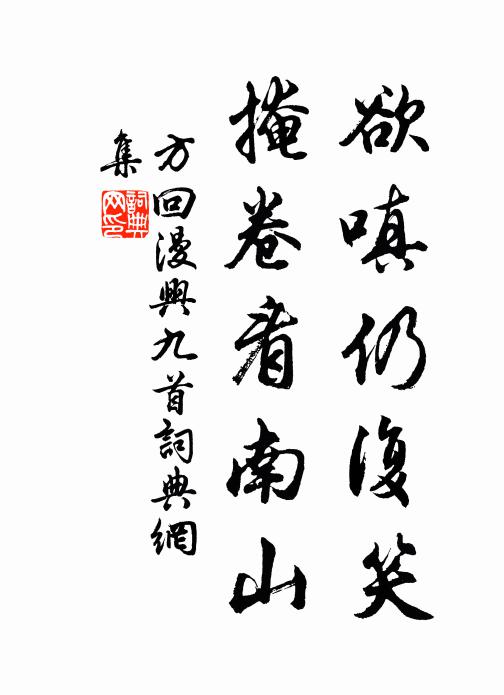 欲嗔仍復笑
掩卷看南山
方回漫興九首詞典網
集
詞典
网印